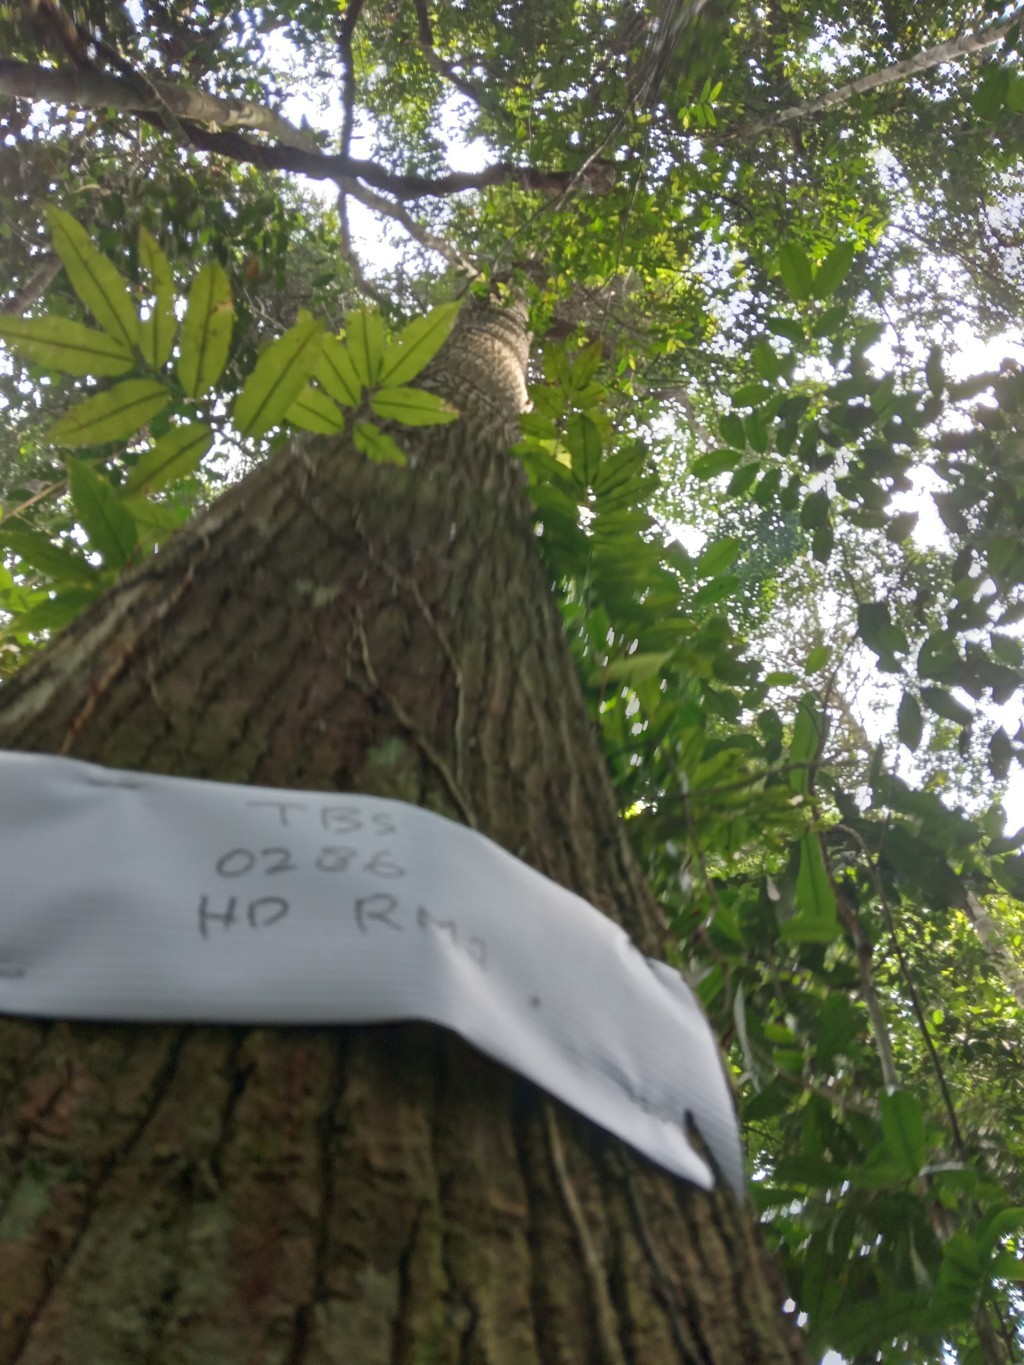 TBS
0286
HD RMJ